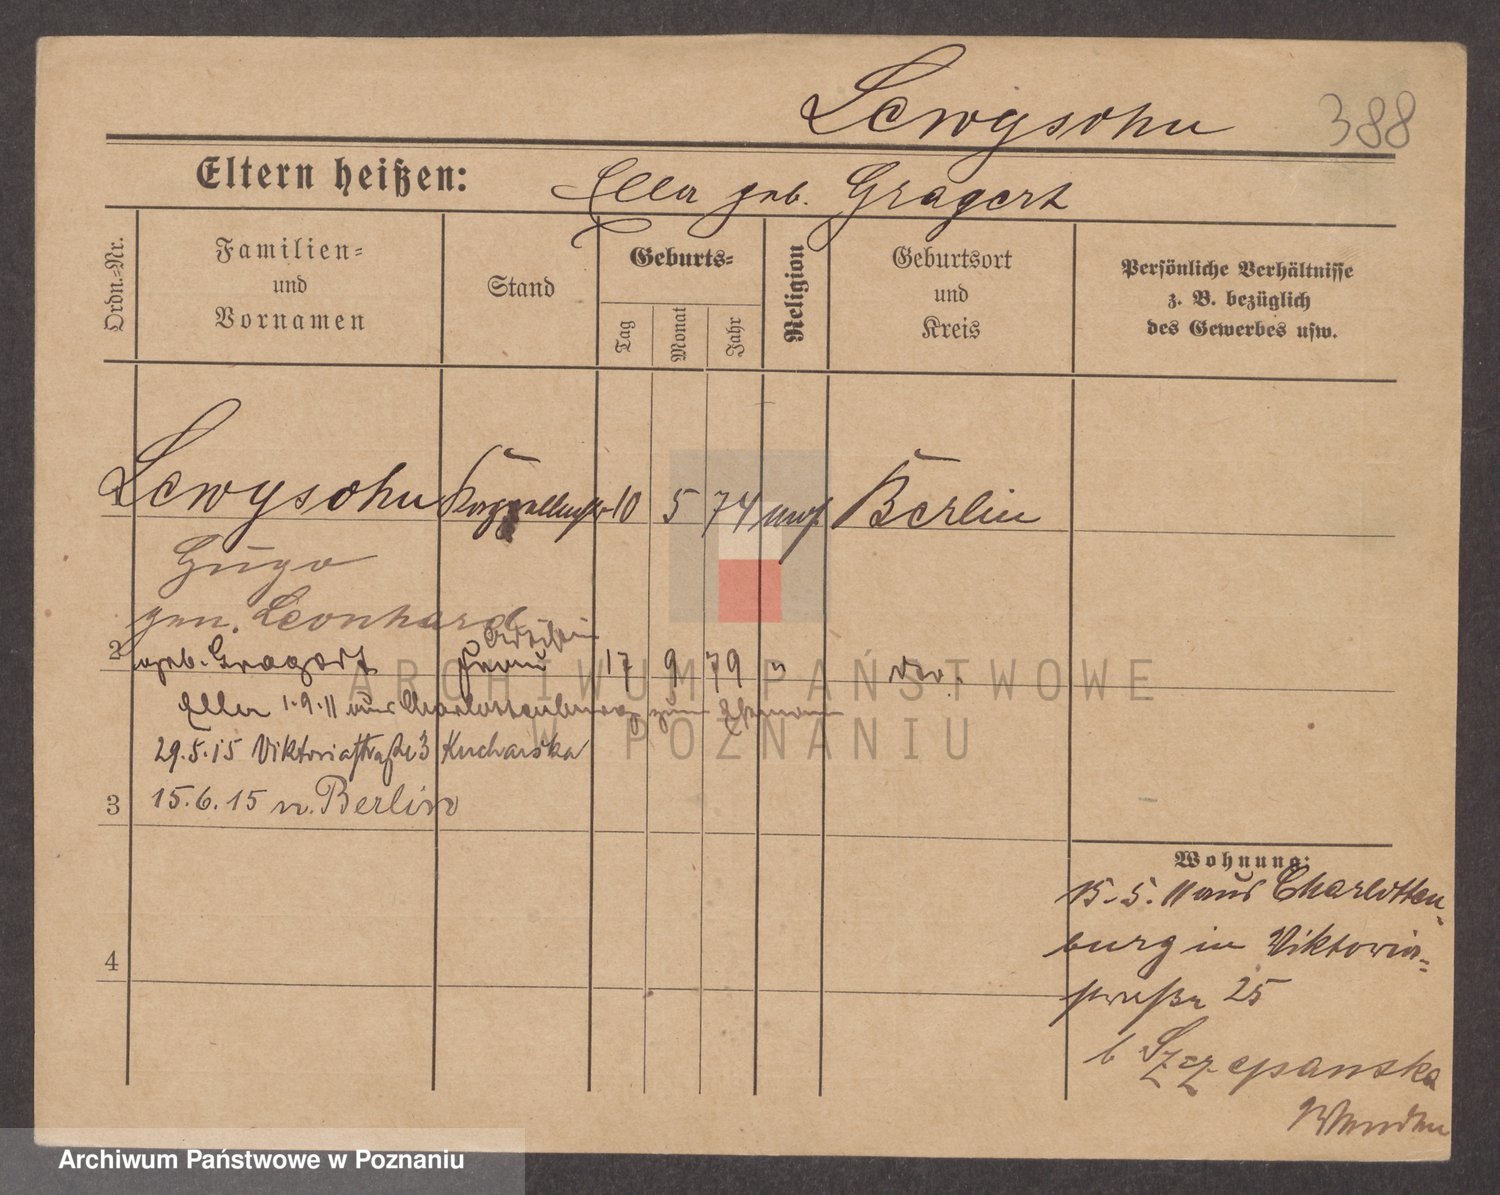 Lewysohn 388
Eltern heißen: Ella geb. Gragert
Ordn.-Nr.
Familien-
und
Vornamen
Stand
Geburts-
Tag
Monat
Jahr
Religion
Geburtsort
und
Kreis
Persönliche Verhältnisse
z. B. bezüglich
des Gewerbes usw.
1 Lewysohn 10 5 74 Berlin
Hugo
gen. Leonhard
2 geb. Gragert Frau 17 9 79 " do.
Ella 1.9.11 aus Charlottenburg zum Ehemann
29.5.15 Viktoriastraße 3 Kucharska
3 15.6.15 n. Berlin
4
Wohnung:
15.5.11 aus Charlotten-
burg in Viktoria-
straße 25
b Szczepanska
ARCHIWUM PAŃSTWOWE
W POZNANIU
Archiwum Państwowe w Poznaniu